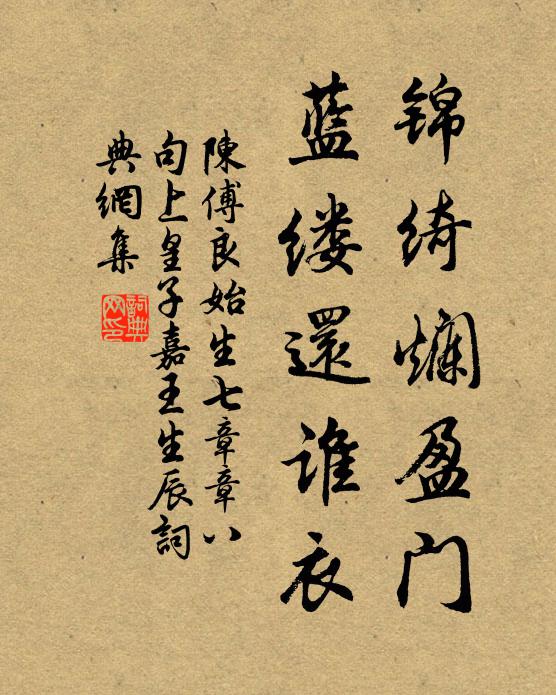 锦绮斓盈门
蓝缕還谁衣
陳傅良始生七章章八
句上皇子嘉王生辰詞
典網集
詞典
网印